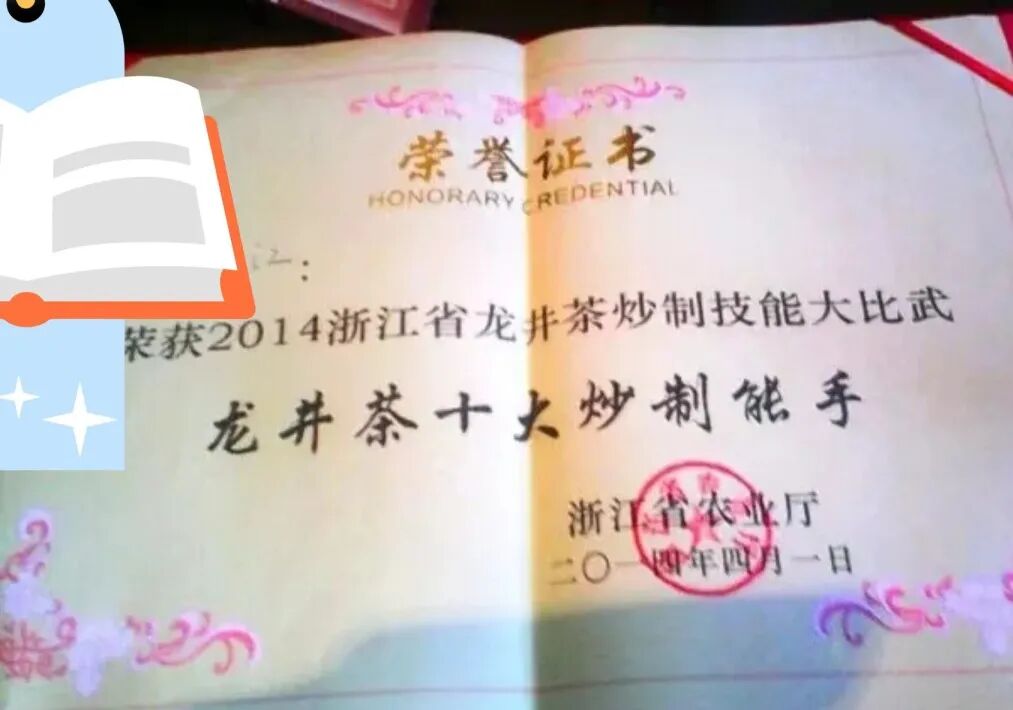 荣誉证书
HONORARY CREDENTIAL
江:
荣获2014浙江省龙井茶炒制技能大比武
龙井茶十大炒制能手
浙江省农业厅
二〇一四年四月一日